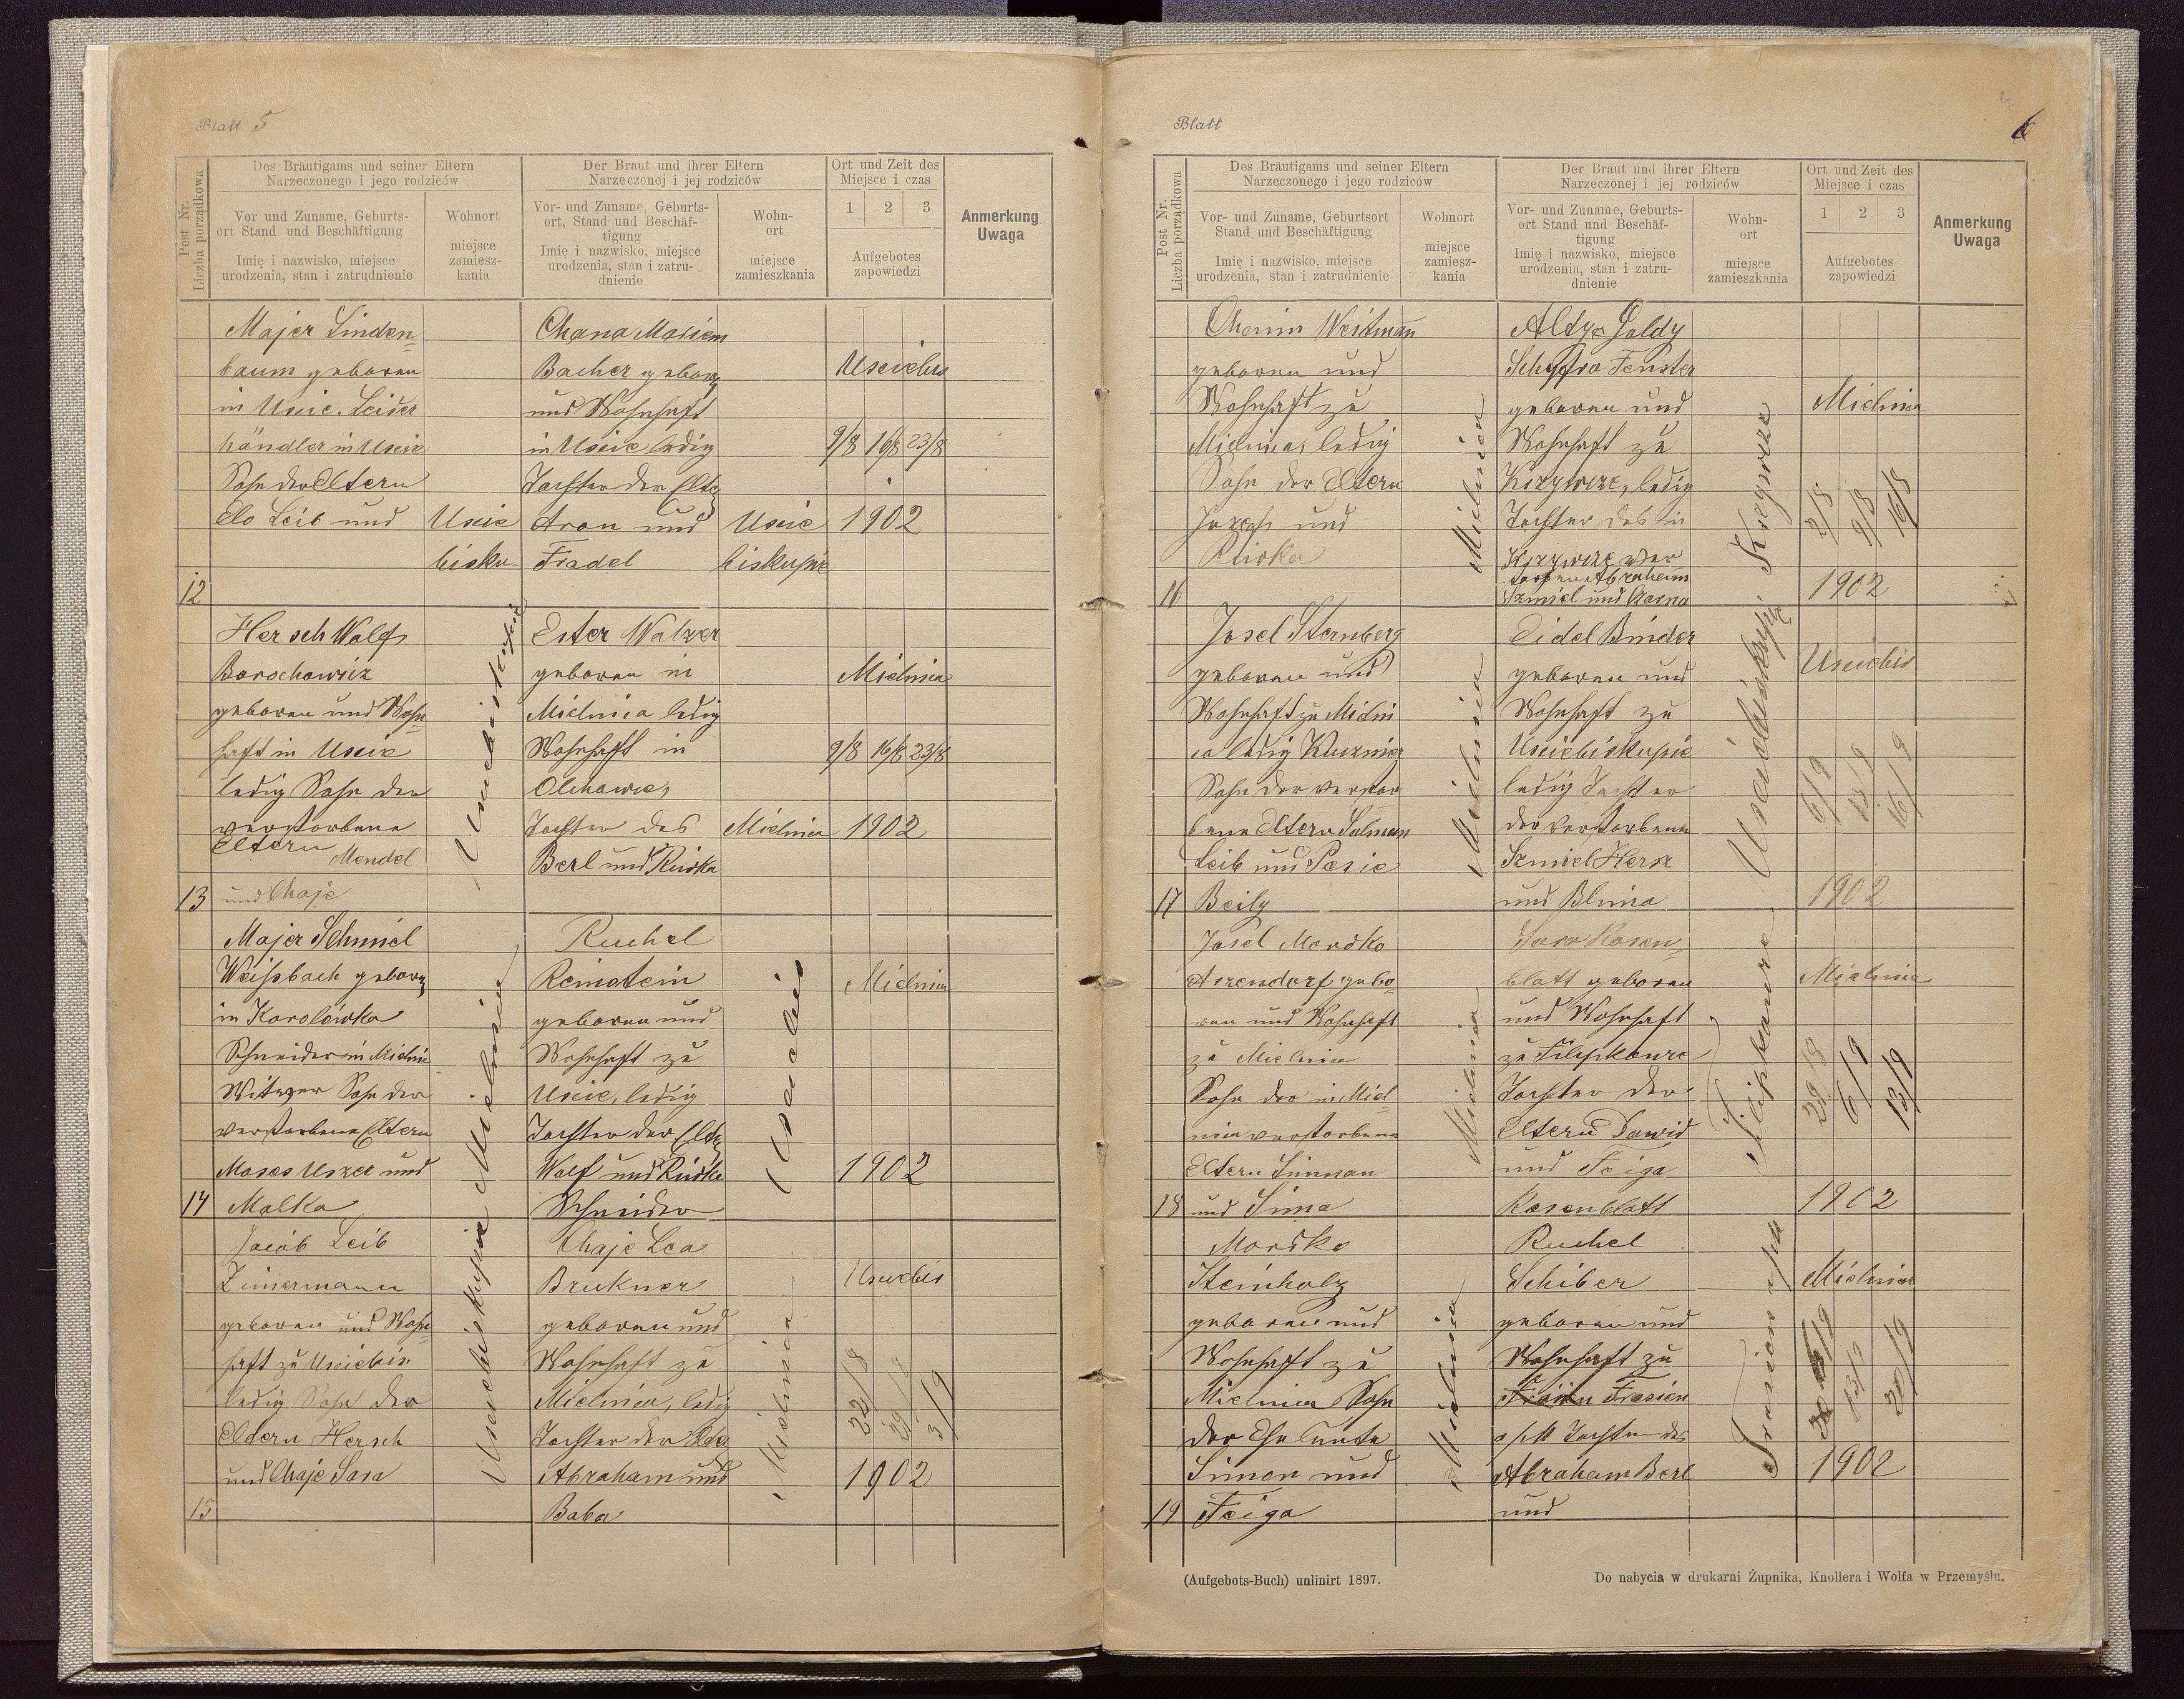 Blatt 5
Post Nr.
Liczba porządkowa
Des Bräutigams und seiner Eltern
Narzeczonego i jego rodziców
Der Braut und ihrer Eltern
Narzeczonej i jej rodziców
Ort und Zeit des
Miejsce i czas
Vor und Zuname, Geburts-
ort Stand und Beschäftigung
Imię i nazwisko, miejsce
urodzenia, stan i zatrudnienie
Wohnort
miejsce
zamiesz-
kania
Vor- und Zuname, Geburts-
ort, Stand und Beschäf-
tigung
Imię i nazwisko, miejsce
urodzenia, stan i zatru-
dnienie
Wohn-
ort
miejsce
zamieszkania
1 2 3
Aufgebotes
zapowiedzi
Anmerkung
Uwaga
12
Majer Linden=
baum geboren
in Uscie
händler in Uscie
Sohn der Eltern
Elo Leib und
Uscie
bisku-
Chana Mariem
Bacher gebor
und Wohnhaft
in Uscie ledig
Tochter der Elt
Aron und
Fradel
Uscie
biskupie
Usciebis
9/8 16/8 23/8
1902
13
Hersch Wolf
Borochowicz
geboren und Wohn=
haft in Uscie
ledig Sohn der
verstorbene
Eltern Mendel
und Chaje
Usciebiskupie
Ester Walzer
geboren in
Mielnica ledig
Wohnhaft in
Olchowce,
Tochter des
Berl und Riwka
Mielnica
Mielnica
9/8 16/8 23/8
1902
14
Majer Schmiel
Weissbach gebor
in Korolówka
Schneider in Mielnic
Witwer Sohn der
verstorbene Eltern
Moses Uszer und
Malka
Mielnica
Ruchel
Reinstein
geboren und
Wohnhaft zu
Uscie, ledig
Tochter der Elt
Wolf und Riwka
Schneider
Usciebis
Mielnica
1902
15
Jacob Leib
Zimermann
geboren und Wohn=
haft zu Usciebis
ledig Sohn der
Eltern Hersch
und Chaje Sara
Usciebiskupie
Chaje Lea
Brukner
geboren und
Wohnhaft zu
Mielnica, ledig
Tochter der Elt
Abraham und
Baba
Mielnica
Usciebis
22/8 29/8 5/9
1902
Blatt
6
Post Nr.
Liczba porządkowa
Des Bräutigams und seiner Eltern
Narzeczonego i jego rodziców
Der Braut und ihrer Eltern
Narzeczonej i jej rodziców
Ort und Zeit des
Miejsce i czas
Vor- und Zuname, Geburtsort
Stand und Beschäftigung
Imię i nazwisko, miejsce
urodzenia, stan i zatrudnienie
Wohnort
miejsce
zamiesz-
kania
Vor- und Zuname, Geburts-
ort Stand und Beschäf-
tigung
Imię i nazwisko, miejsce
urodzenia, stan i zatru-
dnienie
Wohn-
ort
miejsce
zamieszkania
1 2 3
Aufgebotes
zapowiedzi
Anmerkung
Uwaga
16
Chaim Weitman
geboren und
Wohnhaft zu
Mielnica, ledig
Sohn der Eltern
Jozef und
Riwka
Mielnica
Goldy
Fenster
geboren und
Wohnhaft zu
Krzywcze, ledig
Tochter des in
Krzywcze ver
storbene Abraham
Szmiel und
Krzywcze
Mielnica
2/8 9/8 16/8
1902
17
Josel Sternberg
geboren und
Wohnhaft zu Mielni
ca ledig
Sohn der verstor
bene Eltern Salman
Leib und Pesie
Beily
Mielnica
Eidel Binder
geboren und
Wohnhaft zu
Usciebiskupie
ledig Tochter
der verstorbene
Szmiel Hersz
und Blima
Usciebiskupie
Usciebis
6/9 13/9 16/9
1902
18
Josel Mordko
Aszendorf gebo-
ren und Wohnhaft
zu Mielnica
Sohn der in Miel
nica verstorbene
Eltern
und Sima
Mielnica
Sara Rosen=
blatt geboren
und Wohnhaft
zu Filipkowce
Tochter der
Eltern Dawid
und Feiga
Rosenblatt
Filipkowce
Mielnica
29/8 6/9 13/9
1902
19
Mordko
Steinholz
geboren und
Wohnhaft zu
Mielnica Sohn
der Eheleute
Simon und
Feiga
Mielnica
Ruchel
Schiber
geboren und
Wohnhaft zu
Trasien
Tochter des
Abraham Berl
und
Mielnica
13/9 20/9
1902
(Aufgebots-Buch) unlinirt 1897.
Do nabycia w drukarni Żupnika, Knollera i Wolfa w Przemyślu.